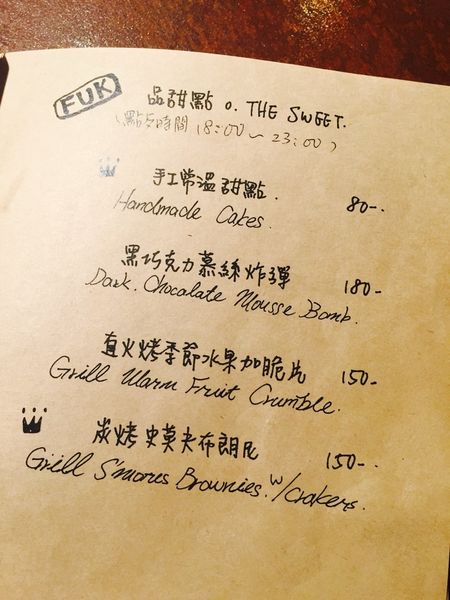 FUK
品甜點 o. THE SWEET.
(點餐時間 18:00~23:00)
手工常溫甜點. 80-.
Handmade Cakes.
黑巧克力慕絲炸彈 180-
Dark. Chocolate Mousse Bomb.
直火烤季節水果加脆片 150-
Grill Warm Fruit Crumble.
炭烤史莫夫布朗尼 150-.
Grill S'mores Brownies. w/crakers.